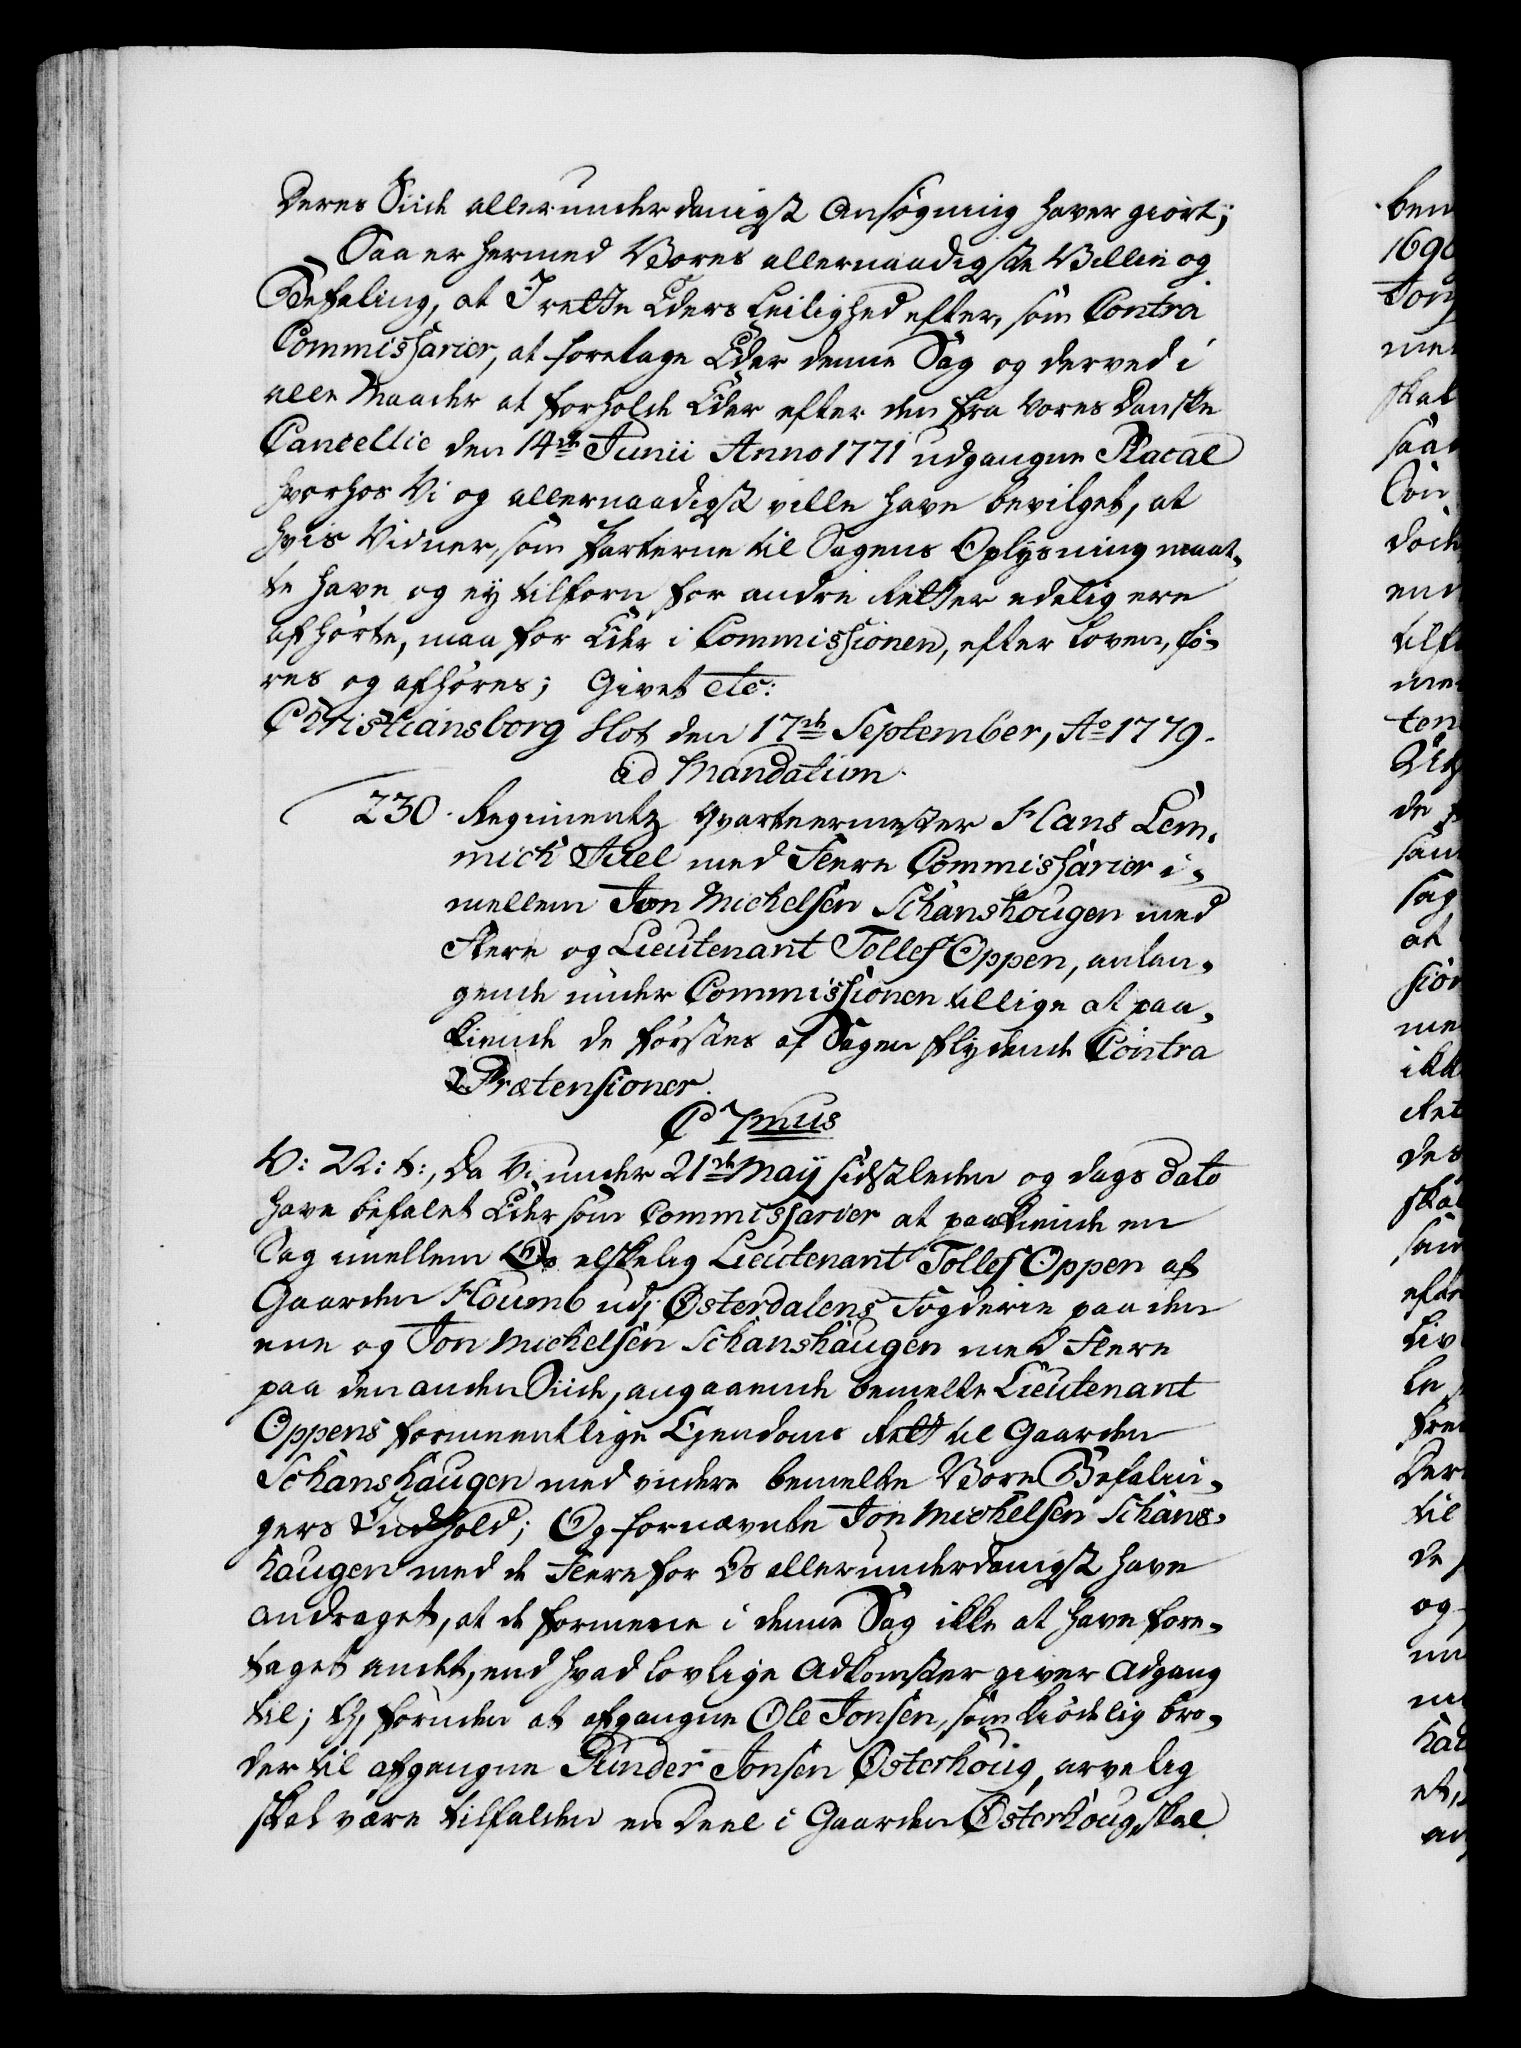 deres Siide allerunderdanigst Ansøgning haver giort;
Saa er hermed Vores allernaadigste Villie og
Befaling, at I rette Eders Leilighed efter, som Contra
Commissarier, at foretage Eder denne Sag og derved i
alle Maader at forholde Eder efter den fra Vores Danske
Cancellie den 14de Junii Anno 1771 udgangne Placat
hvorhos Vi og allernaadigst ville have bevilget, at
hvis Vidner, som Parterne til Sagens Oplysning maat-
te have og ey tilforn for andre Retter edelig ere
afhørte, maa for Eder i Commissionen, efter Loven, fø-
res og afhøres; Givet etc:
Christiansborg Slot den 17de September, Ao 1779.
ad Mandatum.
230. Regiments Qvarteermester Hans Lem-
mich Juel med Flere Commissarier i-
mellem Jon Michelsen Schanshougen med
Flere og Lieutenant Tollef Oppen, anlan-
gende under Commissionen tillige at paa-
kiende de førstes af Sagen flydende Contra
Prætensioner.
C 7mus
V: A: t:, Da Vi under 21de Maij sidstleden og dags dato
have befalet Eder som Commissarier at paakiende en
Sag imellem Os elskelig Lieutenant Tollef Oppen af
Gaarden Houmb udj Østerdalens Fogderie paa den
ene og Jon Michelsen Schanshaugen med Flere
paa den anden Siide, angaaende bemelte Lieutenant
Oppens formeentlige Ejendoms Rett til Gaarden
Schanshaugen med videre bemelte Vore Befalin-
gers Indhold; Og fornævnte Jon Michelsen Schans-
haugen med de Flere for Os allerunderdanigst have
andraget, at de formene i denne Sag ikke at have fore-
taget andet, end hvad lovlige Adkomster giver Adgang
til; thj foruden at afgangne Ole Jonsen, som kiødelig Bro-
der til afgangne Gunder Jonsen Østerhoug, arvelig
skal være tilfalden en Deel i Gaarden Østerhoug, skal